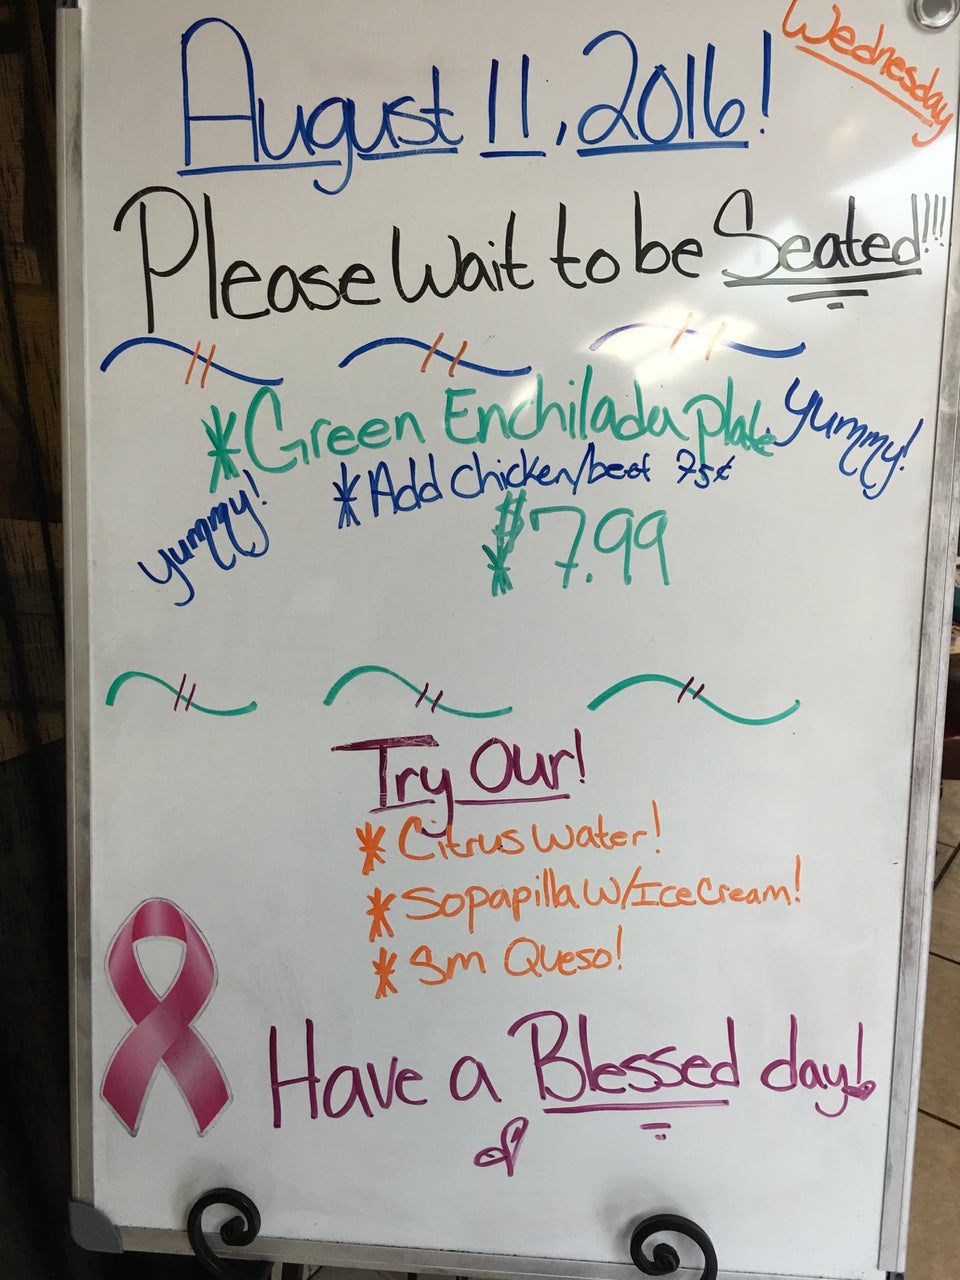 Wednesday
August 11, 2016!
Please Wait to be Seated!!!
*Green Enchilada plate
yummy!
*Add chicken/beef 75¢
yummy!
*$7.99
Try Our!
* Citrus Water!
* Sopapilla W/Ice Cream!
* Sm Queso!
Have a Blessed day!